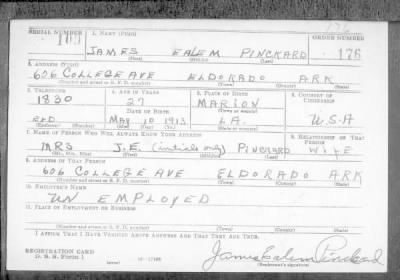 SERIAL NUMBER 1. NAME (Print) ORDER NUMBER
109 JAMES EALEM PINCKARD 176
(First) (Middle) (Last)
2. ADDRESS (Print)
606 COLLEGE AVE ELDORADO ARK
(Number and street or R. F. D. number) (Town) (County) (State)
3. TELEPHONE 4. AGE IN YEARS 5. PLACE OF BIRTH 6. COUNTRY OF CITIZENSHIP
1830 27 MARION
DATE OF BIRTH (Town or county)
ELD MAY 10 1913 LA. U.S.A
(Exchange) (Number) (Mo.) (Day) (Yr.) (State or country)
7. NAME OF PERSON WHO WILL ALWAYS KNOW YOUR ADDRESS 8. RELATIONSHIP OF THAT PERSON
MRS J.E. (initials only) PINCKARD WIFE
(Mr., Mrs., Miss) (First) (Middle) (Last)
9. ADDRESS OF THAT PERSON
606 COLLEGE AVE ELDORADO ARK
(Number and street or R. F. D. number) (Town) (County) (State)
10. EMPLOYER'S NAME
UN EMPLOYED
11. PLACE OF EMPLOYMENT OR BUSINESS
(Number and street or R. F. D. number) (Town) (County) (State)
I AFFIRM THAT I HAVE VERIFIED ABOVE ANSWERS AND THAT THEY ARE TRUE.
REGISTRATION CARD
D. S. S. Form 1 (over) 16—17105
James Ealem Pinckard
(Registrant's signature)